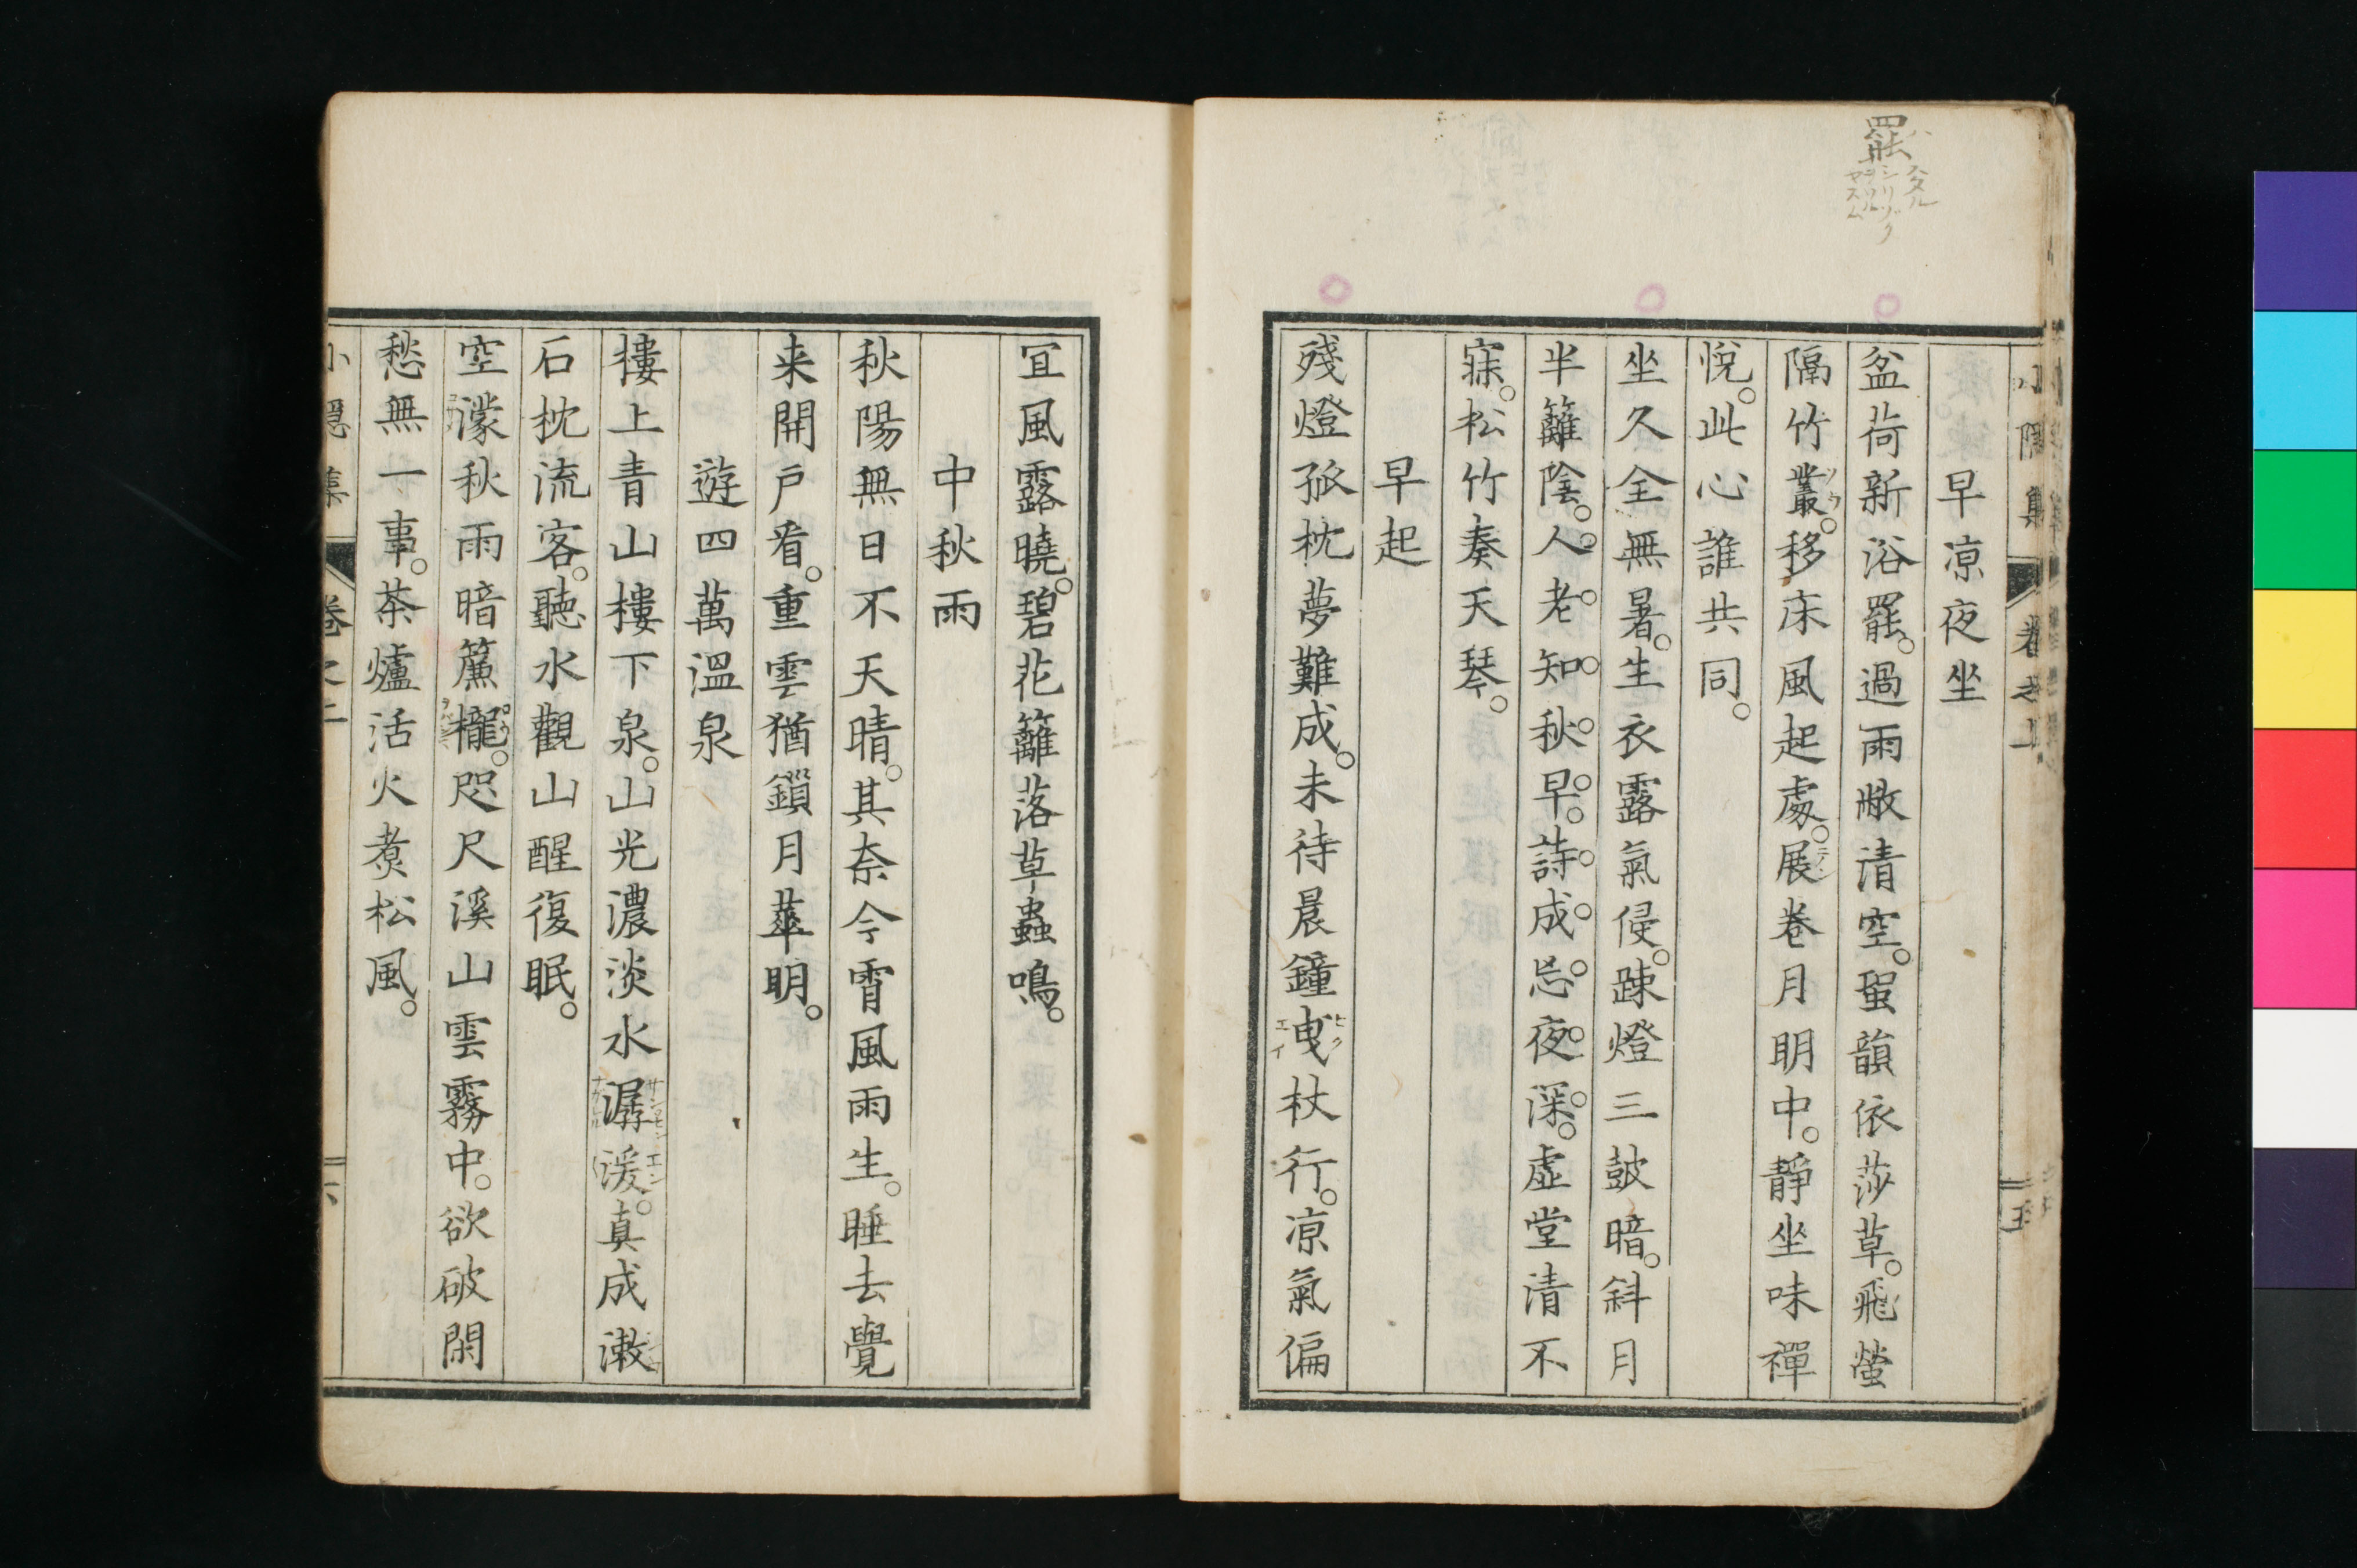 罷
ハ
ハタル
シリゾク
ヤスム
早凉夜坐
盆荷新浴罷。過雨敝清空。蛩韻依莎草。飛螢
隔竹叢。移床風起處。展卷月明中。靜坐味禪
悅。此心誰共同。
坐久全無暑。生衣露氣侵。踈燈三鼓暗。斜月
半籬陰。人老知秋早。詩成忘夜深。虛堂清不
寐。松竹奏天琴。
早起
殘燈孤枕夢難成。未待晨鐘曳杖行。凉氣偏
宜風露曉。碧花籬落草蟲鳴。
中秋雨
秋陽無日不天晴。其奈今宵風雨生。睡去覺
来開戶看。重雲猶鎖月華明。
遊四萬溫泉
樓上青山樓下泉。山光濃淡水潺湲。真成漱
石枕流客。聽水觀山醒復眠。
空濛秋雨暗簾櫳。咫尺溪山雲霧中。欲破閑
愁無一事。茶爐活火煑松風。